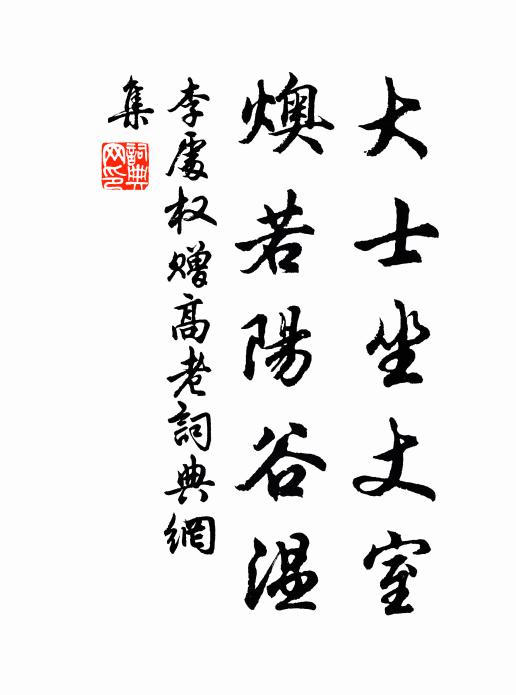 大士坐丈室
燠若陽谷温
李處权赠高老詞典網
集
詞典网印